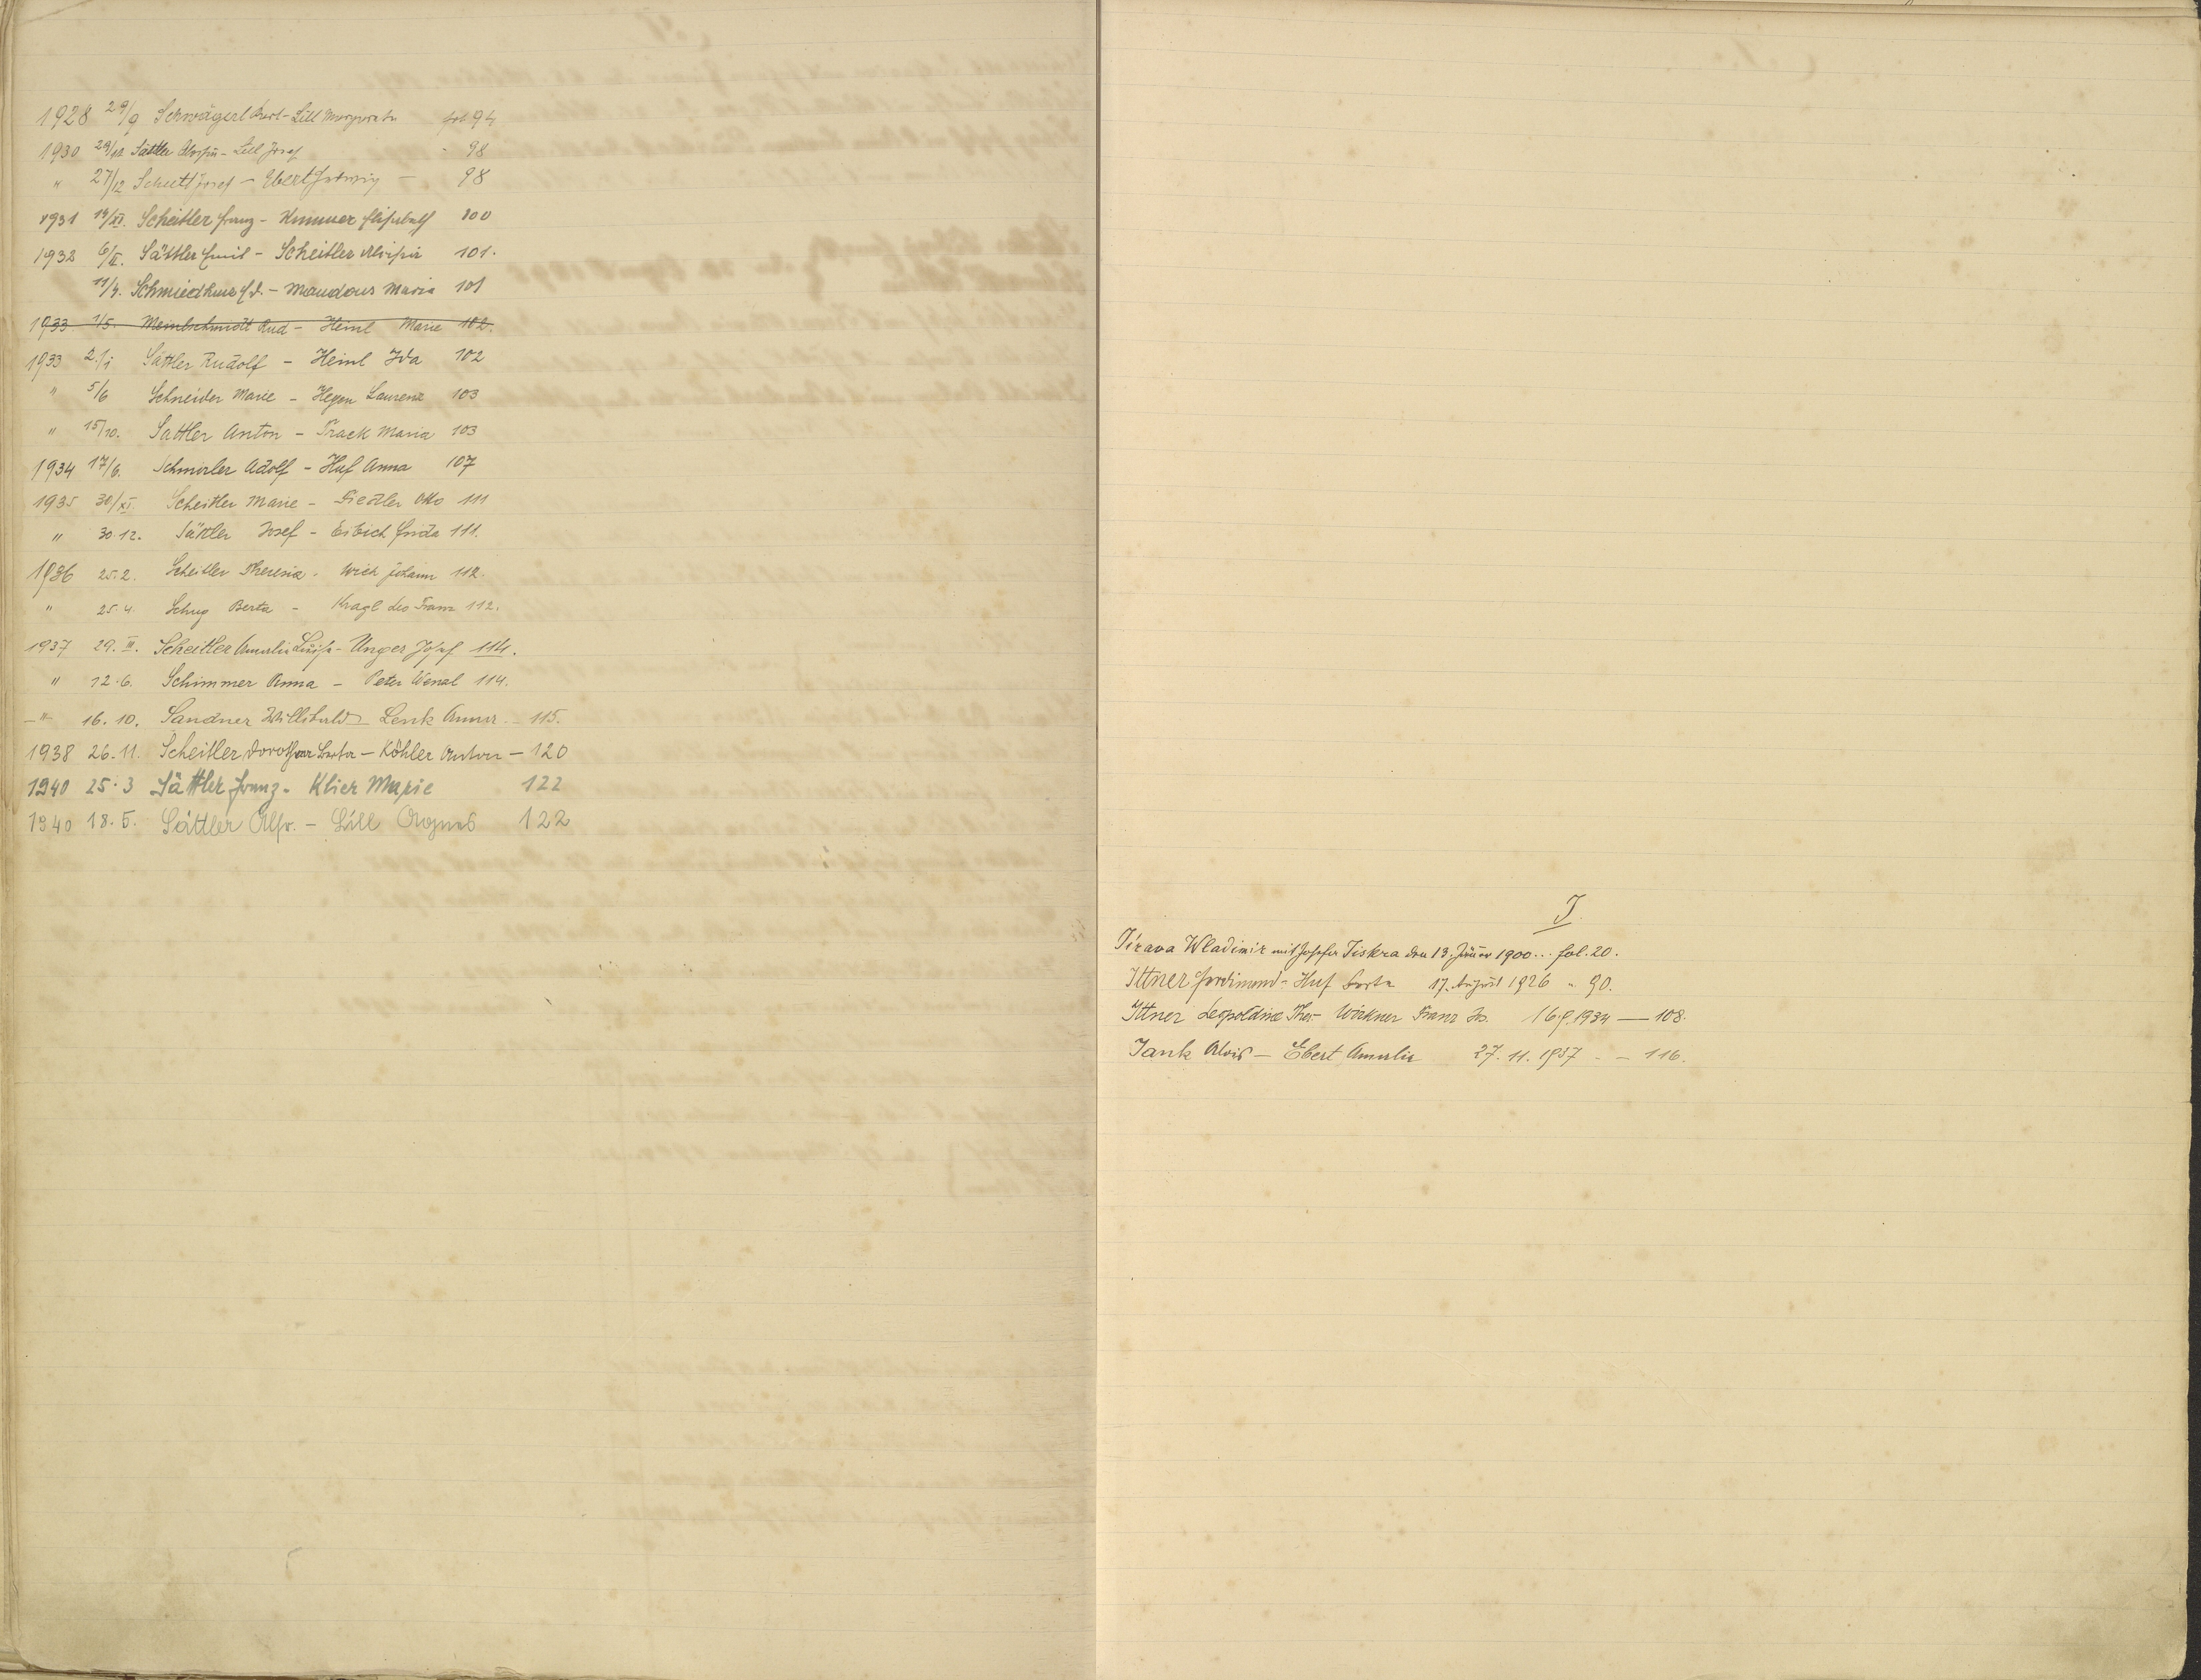 1928 29/9 Schwägerl Karl - Lill Margareta fol. 94
1930 Sattler Aloisia - Lill Josef - 98
" 27/12 Schutt Josef - Ebert Hedwig - 98
1931 14/XI. Scheitler Franz - Kummer Elisabeth 100
1932 6/II. Sättler Emil - Scheitler Aloisia 101.
11/4. Schmiedkunz - Maria 101
1933 1/5. Meinlschmidt Rud - Heinl Marie 102.
1933 2/1 Sättler Rudolf - Heinl Ida 102
" 5/6 Schneider Marie - Hegen Laurenz 103
" 15/10. Sattler Anton - Track Maria 103
1934 17/6. Schmirler Adolf - Huf Anna 107
1935 30/XI. Scheitler Marie - Siedler Otto 111
" 30.12. Sättler Josef - Eibich Frida 111.
1936 25.2. Scheitler Theresia - Wich Johann 112.
" 25.4. Schug Berta - Kragl Franz 112.
1937 29. III. Scheitler Amalie Luise - Unger Josef 114.
" 12.6. Schimmer Anna - Peter Wenzl 114.
-"- 16. 10. Sandner Willibald - Lenk Anna - 115.
1938 26. 11. Scheitler Dorothea Berta - Köhler Anton - 120
1940 25.3 Sättler Franz - Klier Marie 122
1940 18. 5. Sättler Alfr. - Lill Agnes 122
J.
Jirava Wladimir mit Josefa Jiskra den 13. Jänner 1900... fol. 20.
Ittner Ferdinand - Huf Berta 17. August 1926 " 90.
Ittner Leopoldine Ther. - Wirkner Franz Jos. 16.9.1934 — 108.
Jank Alois - Ebert Amalia 27. 11. 1937 - - 116.